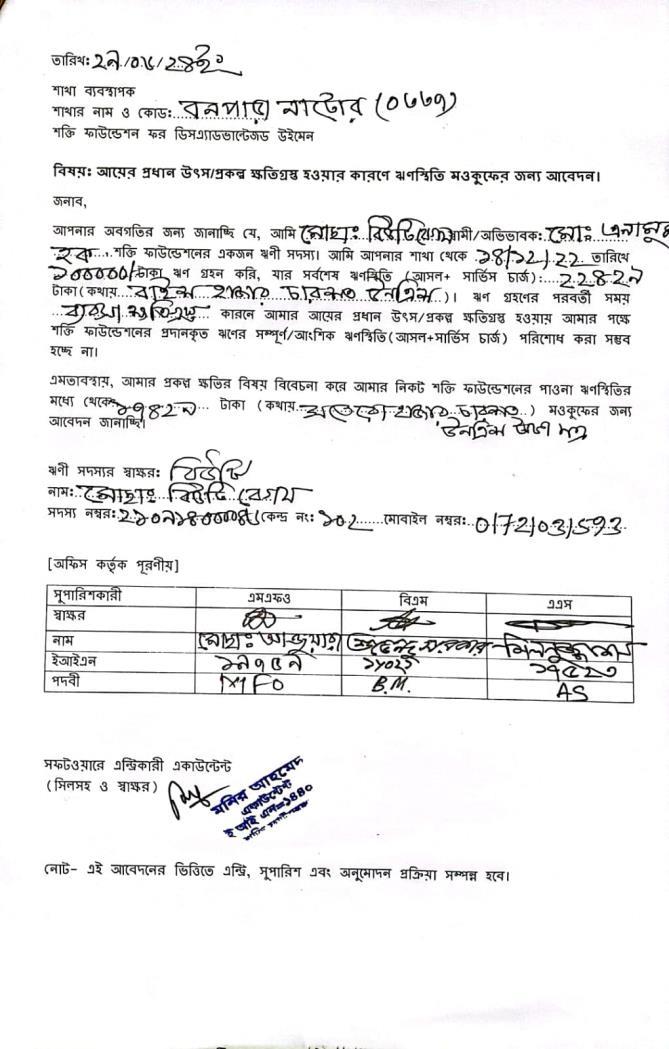 তারিখ: ২৯/০৫/২৪ইং
শাখা ব্যবস্থাপক
শাখার নাম ও কোড: বনপাড়া নাটোর (০৬৬৭)
শক্তি ফাউন্ডেশন ফর ডিসএ্যাডভান্টেজড উইমেন
বিষয়: আয়ের প্রধান উৎস/প্রকল্প ক্ষতিগ্রস্থ হওয়ার কারণে ঋণস্থিতি মওকুফের জন্য আবেদন।
জনাব,
আপনার অবগতির জন্য জানাচ্ছি যে, আমি মোছাঃ বিউটি বেগম স্বামী/অভিভাবক: মোঃ এনামুল
হক শক্তি ফাউন্ডেশনের একজন ঋণী সদস্য। আমি আপনার শাখা থেকে ১৪/১২/২২ তারিখে
১০০০০০/ টাকা ঋণ গ্রহন করি, যার সর্বশেষ ঋণস্থিতি (আসল+ সার্ভিস চার্জ): ২২৪২৯
টাকা (কথায় বাইশ হাজার চারশত উনত্রিশ)। ঋণ গ্রহণের পরবর্তী সময়
ব্যবসা ক্ষতিগ্রস্ত কারনে আমার আয়ের প্রধান উৎস/প্রকল্প ক্ষতিগ্রস্থ হওয়ায় আমার পক্ষে
শক্তি ফাউন্ডেশনের প্রদানকৃত ঋণের সম্পূর্ণ/আংশিক ঋণস্থিতি(আসল+সার্ভিস চার্জ) পরিশোধ করা সম্ভব
হচ্ছে না।
এমতাবস্থায়, আমার প্রকল্প ক্ষতির বিষয় বিবেচনা করে আমার নিকট শক্তি ফাউন্ডেশনের পাওনা ঋণস্থিতির
মধ্যে থেকে ১৭৪২৯ টাকা (কথায় সতেরো হাজার চারশত) মওকুফের জন্য
আবেদন জানাচ্ছি। উনত্রিশ টাকা মাত্র
ঋণী সদস্যর স্বাক্ষর: বিউটি
নাম: মোছাঃ বিউটি বেগম
সদস্য নম্বর: কেন্দ্র নং: ১০২ মোবাইল নম্বর: 01721031593
[অফিস কর্তৃক পূরণীয়]
সুপারিশকারী এমএফও বিএম এএস
স্বাক্ষর
নাম মোছাঃ
ইআইএন
পদবী MFO B.M. AS
সফটওয়ারে এন্ট্রিকারী একাউন্টেন্ট
(সিলসহ ও স্বাক্ষর)
মনির আহমেদ
একাউন্টেন্ট
ই আই এন-১৪৪০
নোট- এই আবেদনের ভিত্তিতে এন্ট্রি, সুপারিশ এবং অনুমোদন প্রক্রিয়া সম্পন্ন হবে।